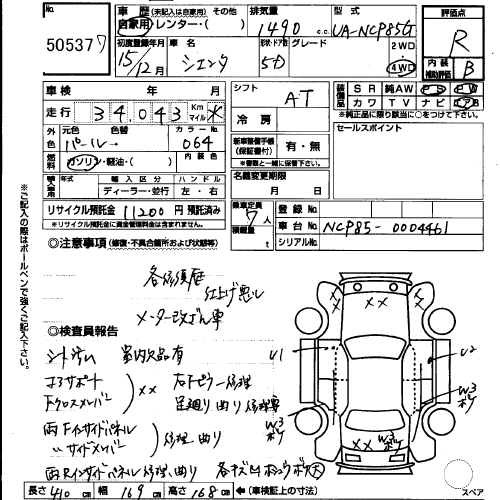 50537
7
車歴
(未記入は自家用)
その他
自家用・レンター・( )
排気量
1490 c.c.
型式
UA-NCP85G
評価点
R
内装補助評価
B
初度登録年月
15/12月
車名
シエンタ
形状・ドア数
5D
グレード
2WD
4WD
車検 年 月
シフト
AT
装備品
SR 純AW PS PW
カワ TV ナビ エアB
*純正品に限り該当に○をつけて下さい。
走行 34,043 Km マイル
冷房
セールスポイント
外色
元色 色替 カラーNo.
パール→ 064
新車整備手帳(保証書付)
有・無
*書類と一緒に保管下さい。
燃料
ガソリン・軽油・( )
内装色
名義変更期限
月 日
輸入車用
年式 輸入区分 ハンドル
ディーラー・並行 左・右
リサイクル預託金 11200 円 預託済み
*リサイクル預託金に資金管理料金は含まれません。
乗車定員 7人
積載量 t
登録No.
車台No. NCP85-0004461
シリアルNo.
◎注意事項 (修復・不具合箇所および状態等)
各修復歴
仕上げ悪し
メーター改ざん車
◎検査員報告
シートイタミ 室内欠品有
コアサポート
下クロスメンバ
××
右Fピラー修理
足廻り曲り修理要
両Fインサイドパネル
〃サイドメンバ
修理曲り
両Rインサイドパネル修理、曲り
各キズ凹
U1
U2
W3
W3
W3
××
××
長さ 410 cm 幅 169 cm 高さ 168 cm (車検証上の寸法)
スペア
※ご記入の際はボールペンで強くご記入下さい。